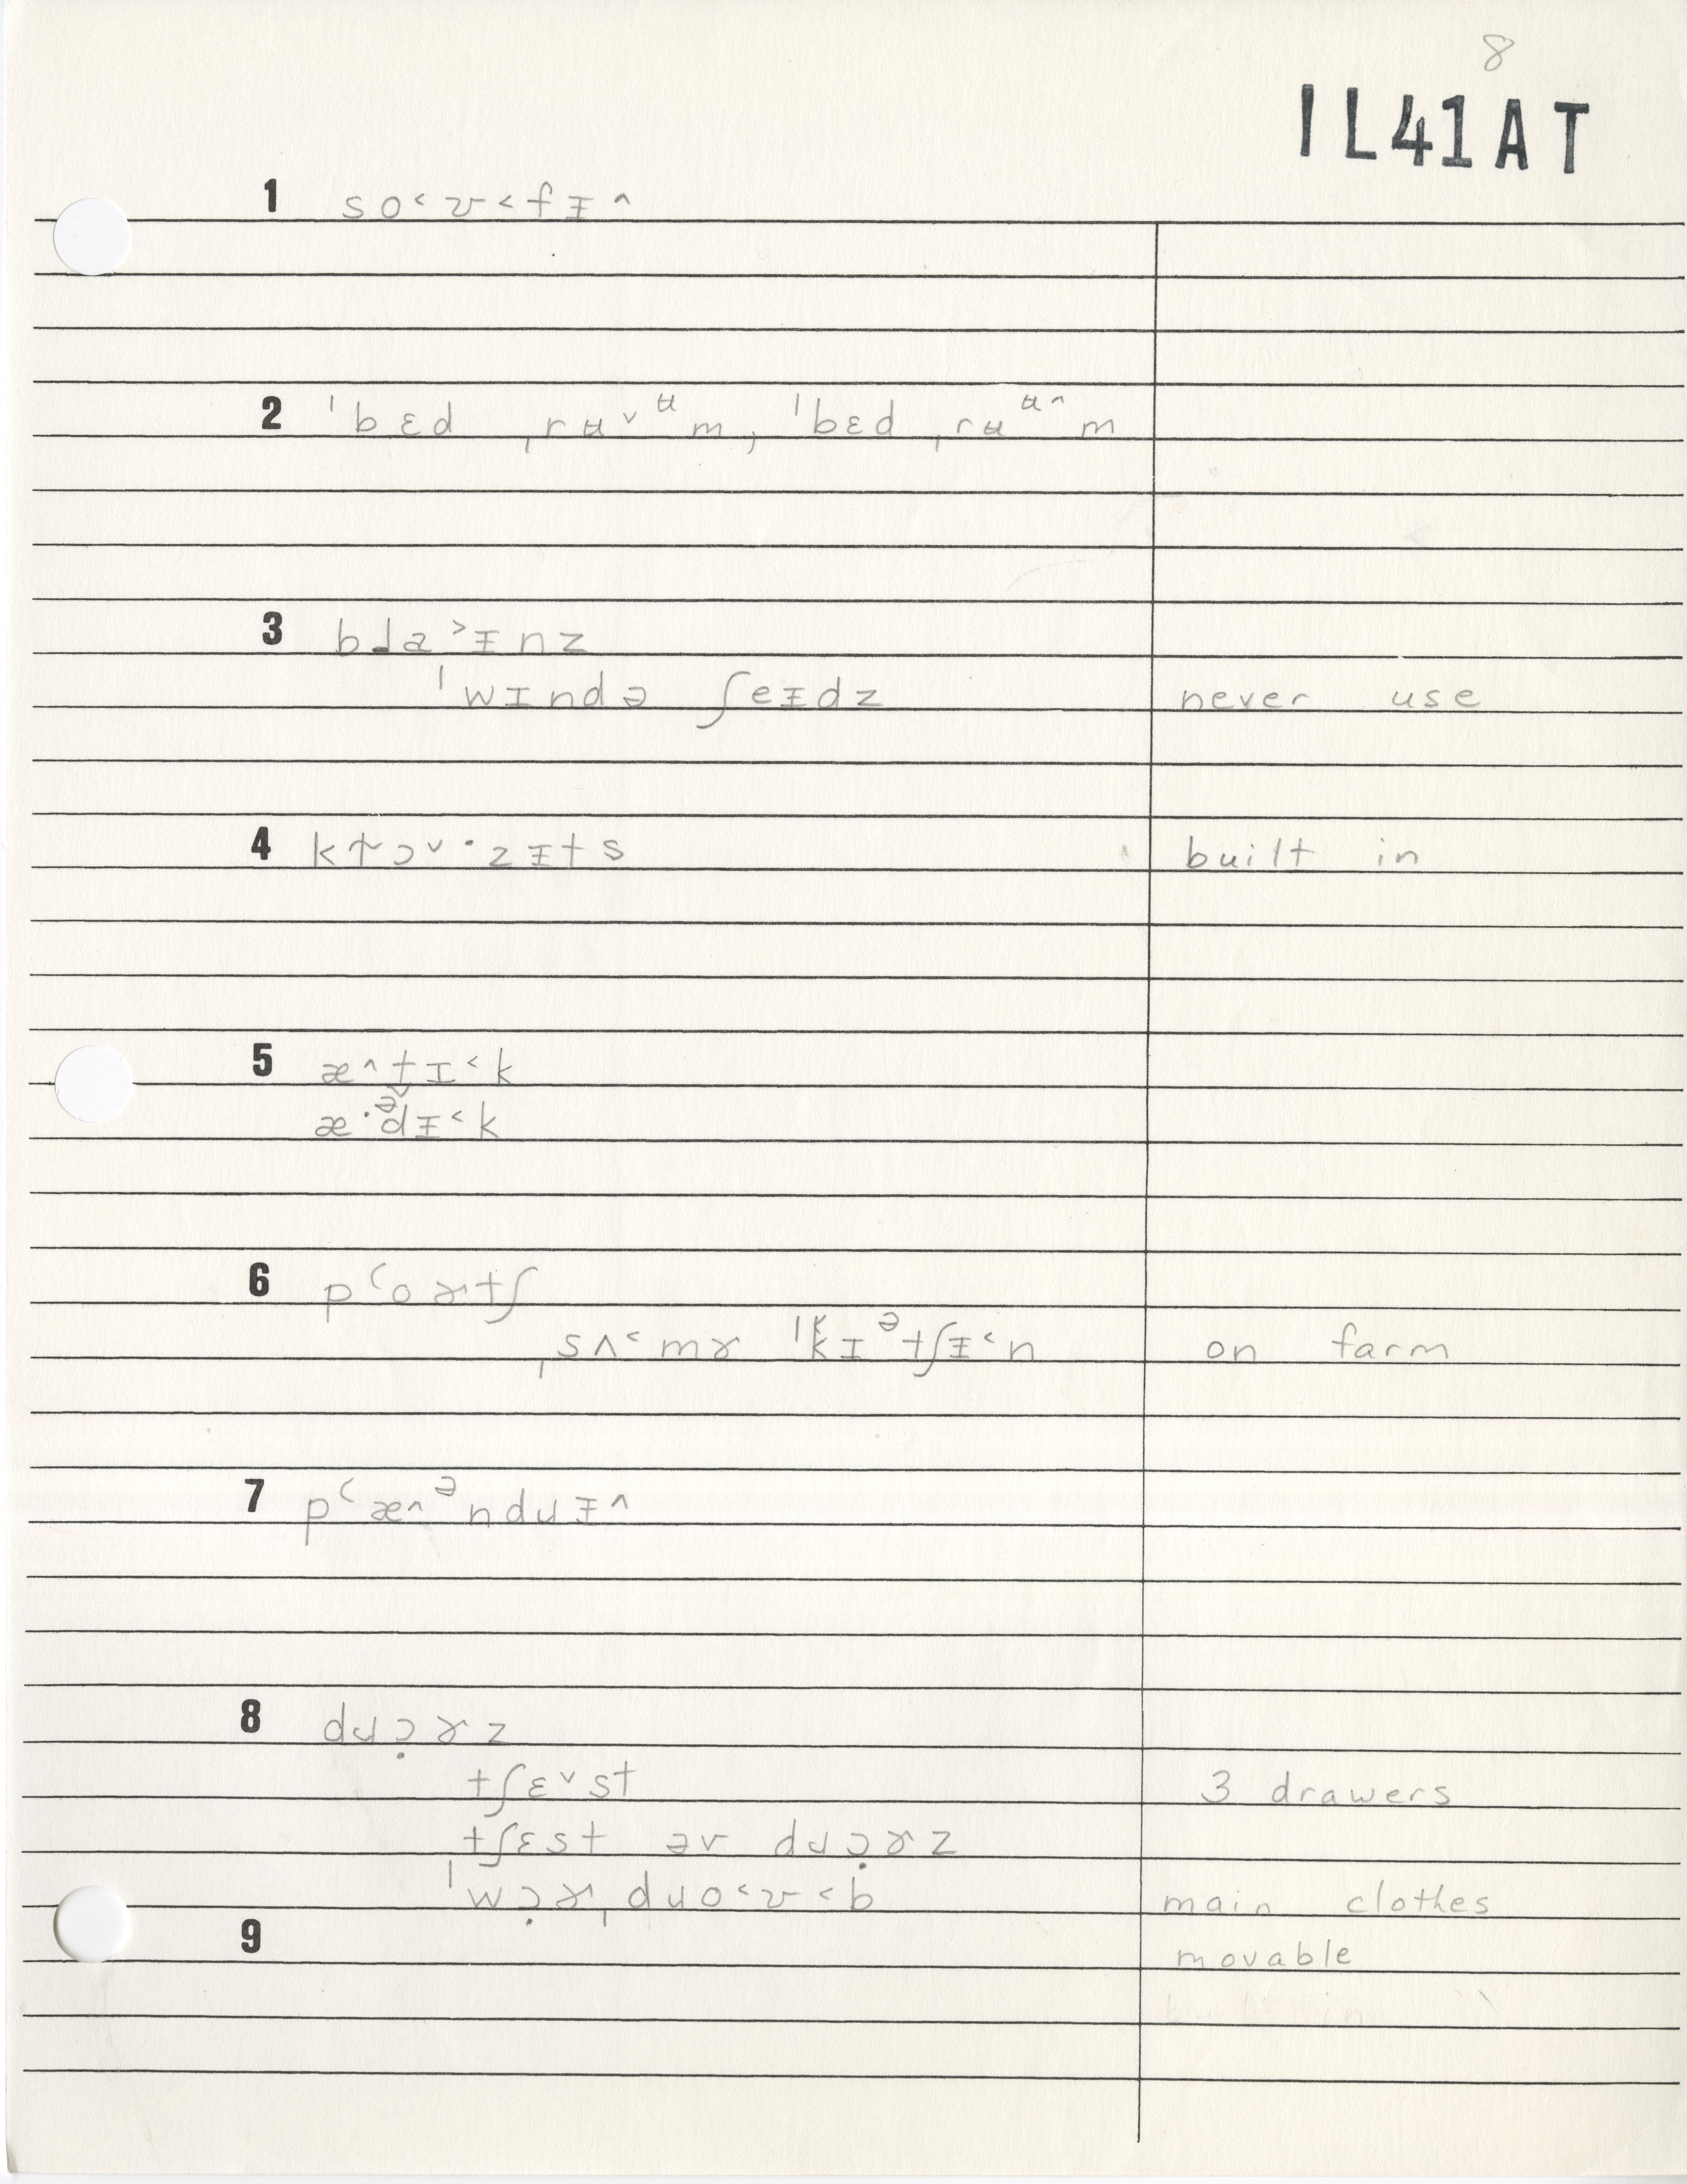 8
IL41AT
1 so˂ʊ˂fɪ̵˄
2 ˈbɛd ˌrʉ˅ᶶm, ˈbɛd ˌrʉᶶ˄m
3 bɺa˃ɪ̵nz
ˈwɪndə ʃeɪ̵dz never use
4 kɫ̥ɔ˅·zɪ̵ts built in
5 æ˄tɪ˂k
æ·ᵊd̬ɪ̵˂k
6 pʻoɚtʃ
ˌsʌ˂mɚ ˈkɪᵊtʃɪ̵˂n on farm
7 pʻæ˄ᵊndɹɪ̵˄
8 dɹɔ̣ɚz
tʃɛ˅st 3 drawers
tʃɛst əv dɹɔ̣ɚz
ˈwɔ̣ɚˌdɹo˂ʊ˂b main clothes
9 movable